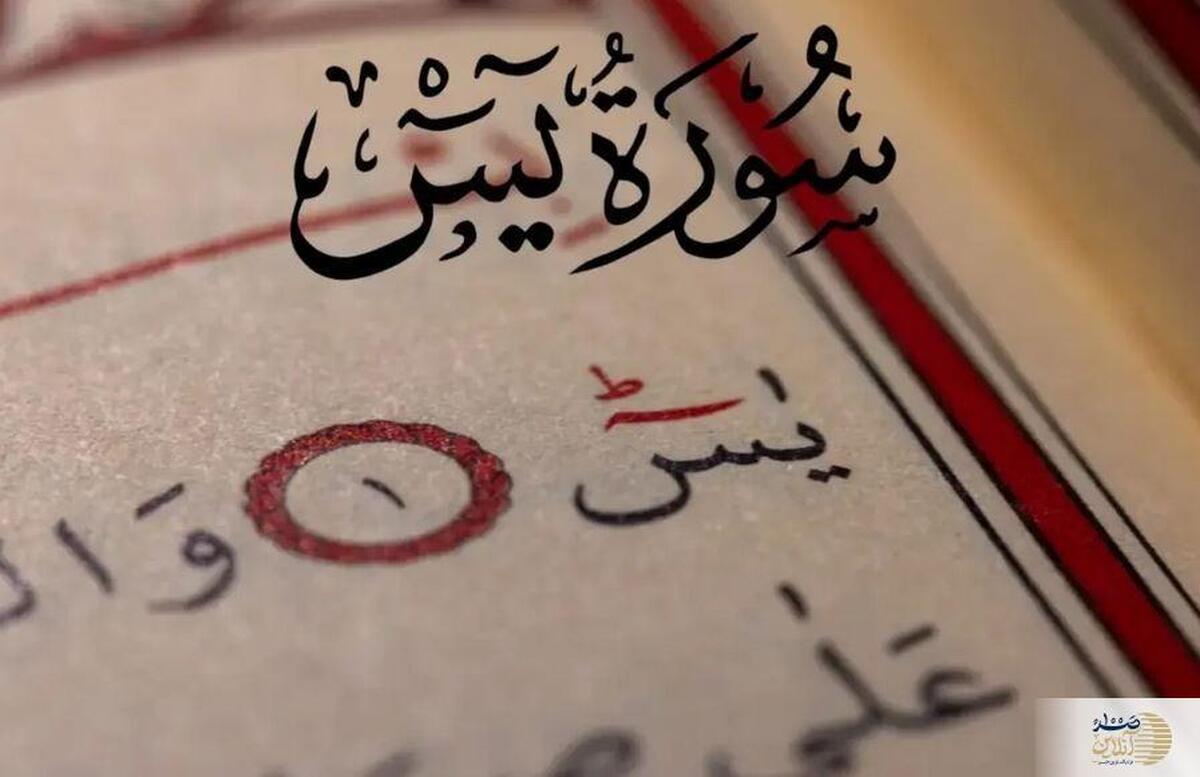 سُورَةُ يٓسٓ
يٰسٓ ۱ وَال
عَلٰى
صدا
آنلاین